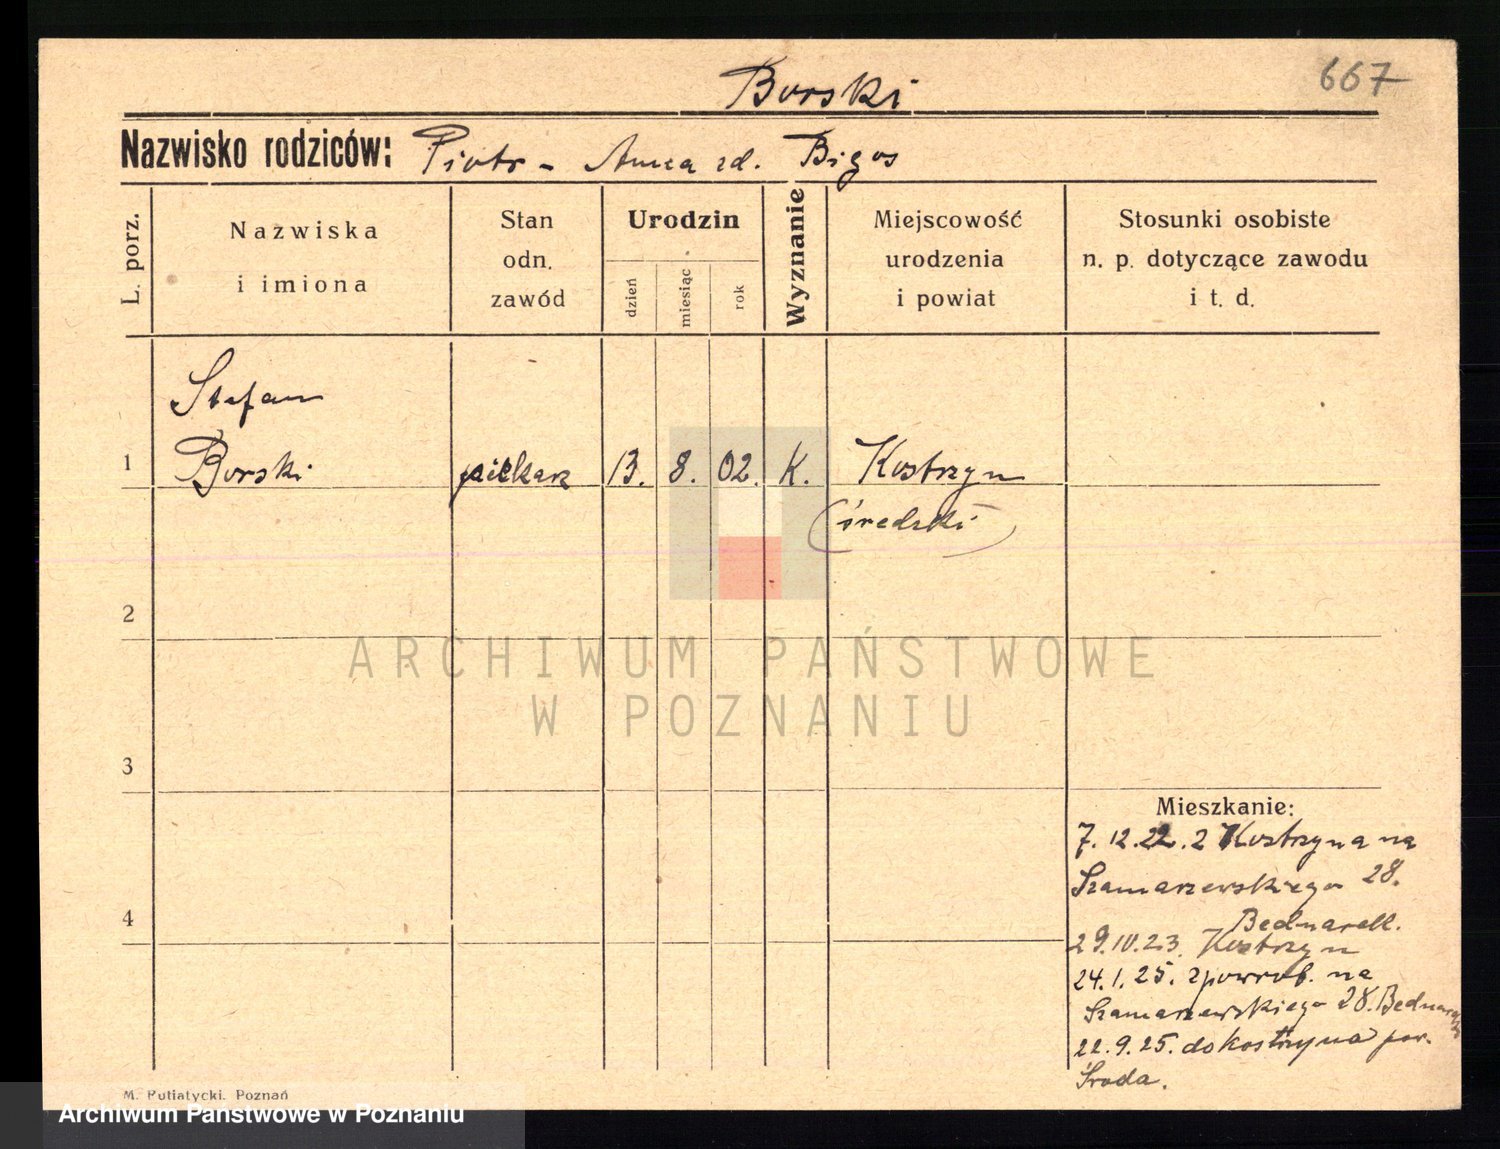 667
Borski
Nazwisko rodziców: Piotr - Anna zd. Bigos
L. porz.
Nazwiska
i imiona
Stan
odn.
zawód
Urodzin
dzień
miesiąc
rok
Wyznanie
Miejscowość
urodzenia
i powiat
Stosunki osobiste
n. p. dotyczące zawodu
i t. d.
Stefan
1 Borski piekarz 13. 8. 02. K. Kostrzyn
(średzki)
2
ARCHIWUM PAŃSTWOWE
W POZNANIU
3
4
Mieszkanie:
7. 12. 22. z Kostrzyna na
Szamarzewskiego 28.
Bednarek.
29. 10. 23. Kostrzyn
24. 1. 25. zpowrot. na
Szamarzewskiego 28. Bednarek
22. 9. 25. do Kostrzyna pow.
Środa.
M. Putiatycki. Poznań
Archiwum Państwowe w Poznaniu